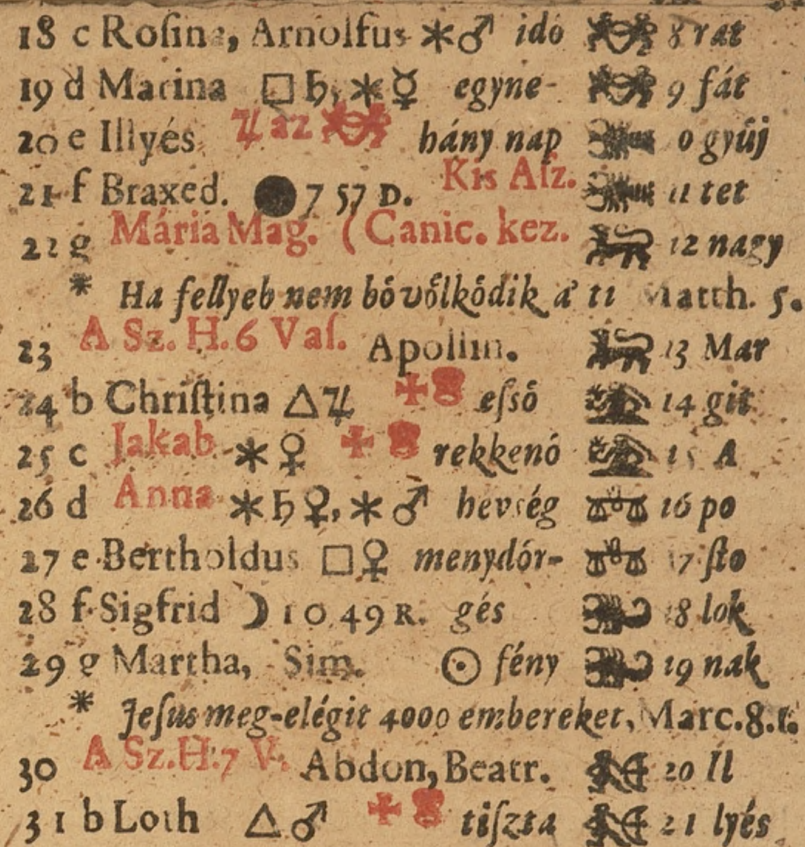 18 c Roſina, Arnolfus ⚹♂ idő 8 rat
19 d Marina □♄, ⚹☿ egyne- 9 fát
20 e Illyés ♃ az hány nap 0 gyűj
21 f Braxed. ●7 57 D. Kis Aſz. 11 tet
22 g Mária Mag. (Canic. kez. 12 nagy
* Ha fellyeb nem bővőlkődik a' ti Matth. 5.
23 A Sz. H. 6 Vaſ. Apollin. 13 Mar
24 b Chriſtina △♃ ✚ eſső 14 git
25 c Jakab ⚹♀ ✚ rekkenő 15 A
26 d Anna ⚹♄♀, ⚹♂ hevség 16 po
27 e Bertholdus □♀ menydőr- 17 ſto
28 f Sigfrid ☽ 10 49 R. gés 18 lok
29 g Martha, Sim. ☉ fény 19 nak
* Jeſus meg-elégit 4000 embereket, Marc. 8. 1.
30 A Sz. H. 7 V. Abdon, Beatr. 20 Il
31 b Loth △♂ ✚ tiſzta 21 lyés